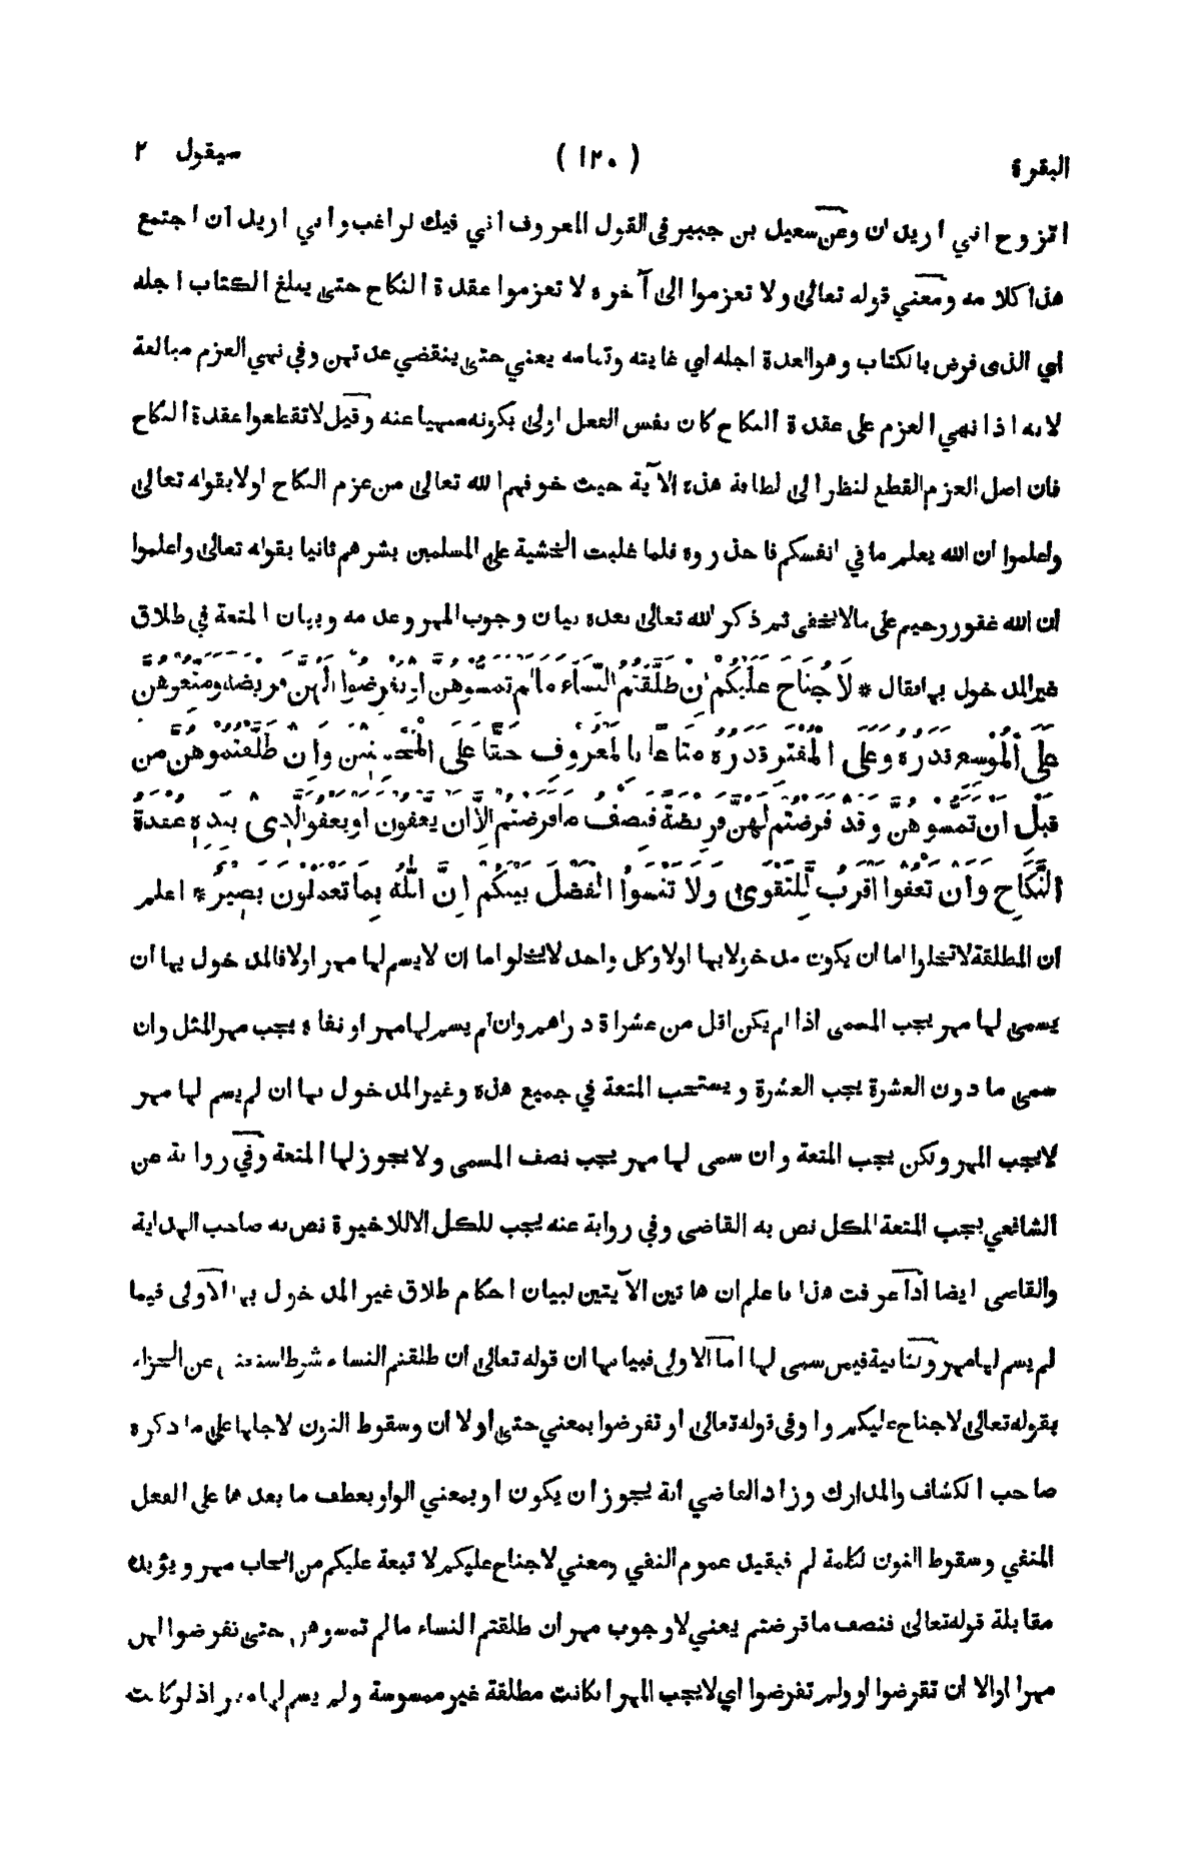 البقرة (١٢٠) سيقول ٢
اتزوج اني اريد ان وعن سعيد بن جبير في القول المعروف اني فيك لراغب واني اريد ان اجتمع
هذا كلامه ومعني قوله تعالى ولا تعزموا الى آخره لا تعزموا عقدة النكاح حتى يبلغ الكتاب اجله
اي الذى فرض بالكتاب وهو العدة اجله اي غايته وتمامه يعني حتى ينقضي عدتهن وفي نهي العزم مبالغة
لانه اذا نهي العزم على عقدة النكاح كان نفس الفعل اولى بكونه منهيا عنه وقيل لا تقطعوا عقدة النكاح
فان اصل العزم القطع لنظر الى لطافة هذه الآية حيث خوفهم الله تعالى من عزم النكاح اولا بقوله تعالى
واعلموا ان الله يعلم ما في انفسكم فاحذروه فلما غلبت الخشية على المسلمين بشرهم ثانيا بقوله تعالى واعلموا
ان الله غفور رحيم على مالا يخفى ثم ذكر الله تعالى بعده بيان وجوب المهر وعدمه وبيان المتعة في طلاق
غير المدخول بها فقال * لَا جُنَاحَ عَلَيْكُمْ اِنْ طَلَّقْتُمُ النِّسَاءَ مَا لَمْ تَمَسُّوْهُنَّ اَوْ تَفْرِضُوْا لَهُنَّ فَرِيْضَةً وَمَتِّعُوْهُنَّ
عَلَى الْمُوْسِعِ قَدَرُهُ وَعَلَى الْمُقْتِرِ قَدَرُهُ مَتَاعًا بِالْمَعْرُوْفِ حَقًّا عَلَى الْمُحْسِنِيْنَ وَاِنْ طَلَّقْتُمُوْهُنَّ مِنْ
قَبْلِ اَنْ تَمَسُّوْهُنَّ وَقَدْ فَرَضْتُمْ لَهُنَّ فَرِيْضَةً فَنِصْفُ مَا فَرَضْتُمْ اِلَّا اَنْ يَّعْفُوْنَ اَوْ يَعْفُوَ الَّذِى بِيَدِهٖ عُقْدَةُ
النِّكَاحِ وَاَنْ تَعْفُوْا اَقْرَبُ لِلتَّقْوٰى وَلَا تَنْسَوُا الْفَضْلَ بَيْنَكُمْ اِنَّ اللّٰهَ بِمَا تَعْمَلُوْنَ بَصِيْرٌ * اعلم
ان المطلقة لا تخلوا اما ان يكون مدخولا بها اولا وكل واحد لا يخلو اما ان لا يسم لها مهر اولا فالمدخول بها ان
يسمى لها مهر يجب المسمى اذا لم يكن اقل من عشرة دراهم وان لم يسم لها مهر او نفاه يجب مهر المثل وان
سمى ما دون العشرة يجب العشرة ويستحب المتعة في جميع هذه وغير المدخول بها ان لم يسم لها مهر
لا يجب المهر ولكن يجب المتعة وان سمى لها مهر يجب نصف المسمى ولا يجوز لها المتعة وفي رواية عن
الشافعي يجب المتعة للكل نص به القاضى وفي رواية عنه يجب للكل الا للاخيرة نص به صاحب الهداية
والقاضى ايضا اذا عرفت هذا فاعلم ان هاتين الآيتين لبيان احكام طلاق غير المدخول بها الاولى فيما
لم يسم لها مهر والثانية فيمن سمى لها اما الاولى فبيانها ان قوله تعالى ان طلقتم النساء شرط استغنى عن الجزاء
بقوله تعالى لا جناح عليكم واو فى قوله تعالى او تفرضوا بمعني حتى او لا ان وسقوط النون لاجلها على ما ذكره
صاحب الكشاف والمدارك وزاد القاضي انه يجوز ان يكون او بمعني الواو بعطف ما بعدها على الفعل
المنفي وسقوط النون لكلمة لم فيفيد عموم النفي ومعني لا جناح عليكم لا تبعة عليكم من ايجاب مهر ويؤيده
مقابلة قوله تعالى فنصف ما فرضتم يعني لا وجوب مهر ان طلقتم النساء ما لم تمسوهن حتى تفرضوا لهن
مهرا او الا ان تفرضوا او ولم تفرضوا اي لا يجب المهر اكانت مطلقة غير ممسوسة ولم يسم لها مهر اذ لو كانت